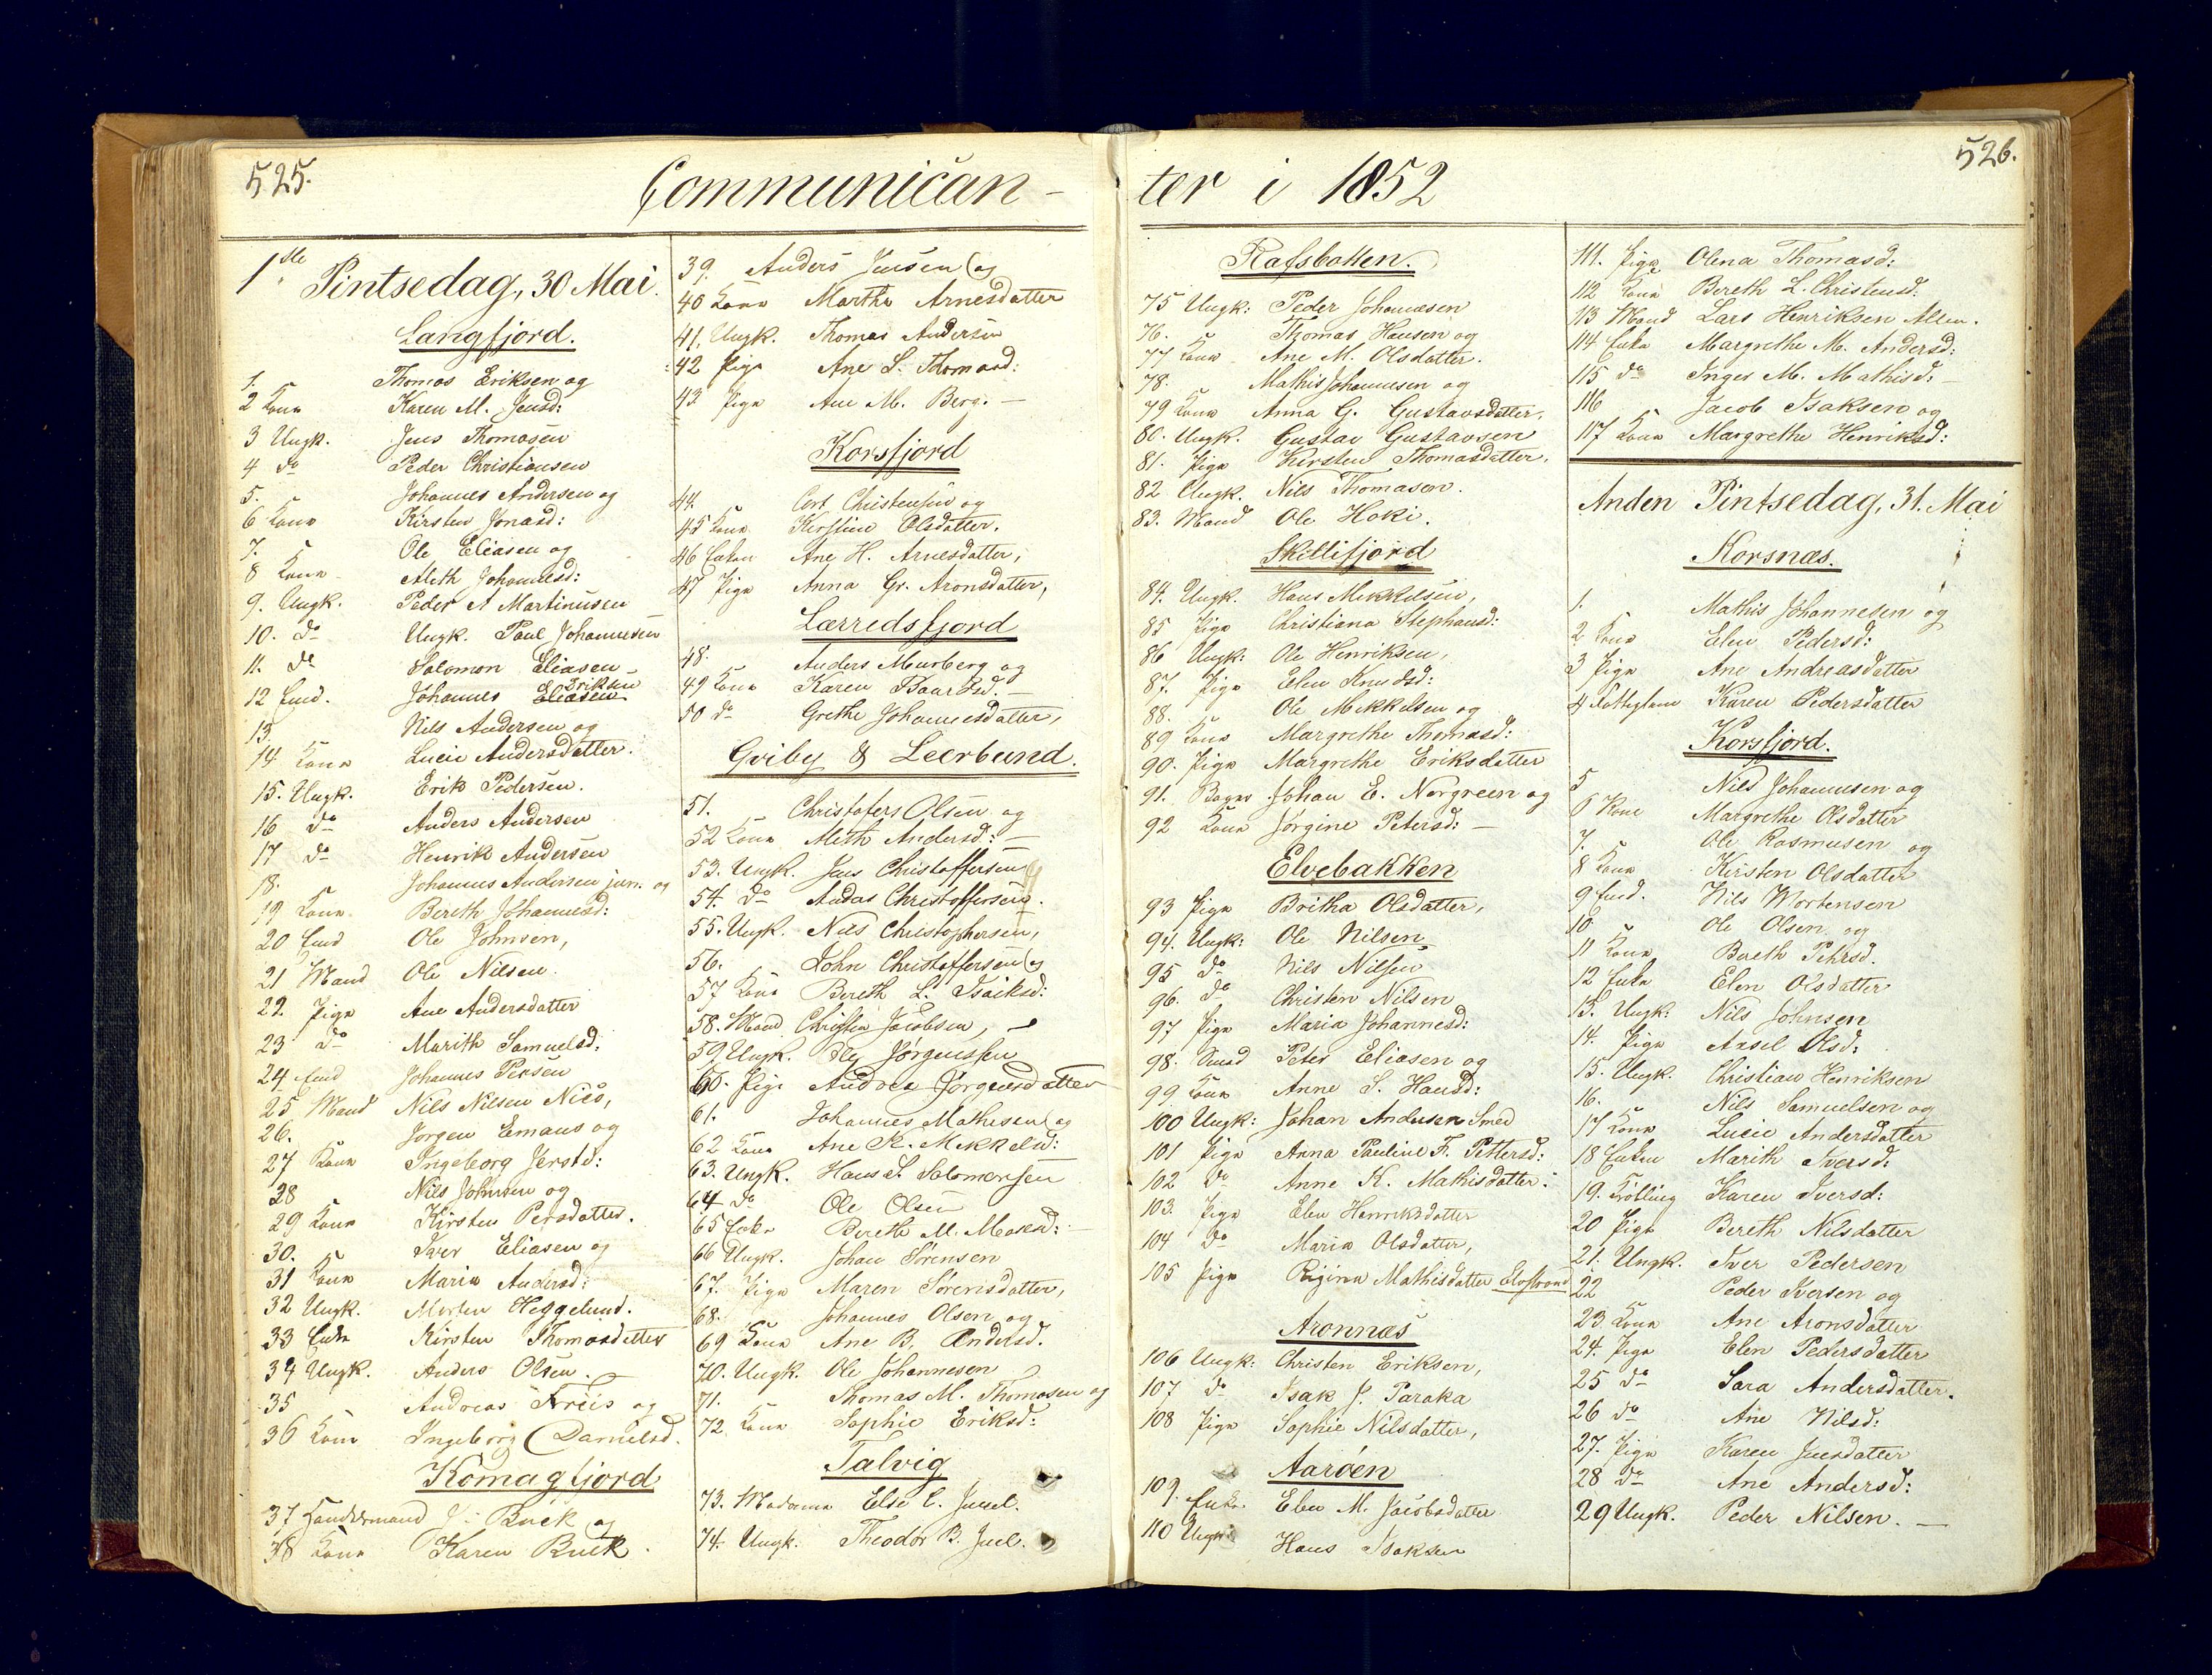 525.
Communican-
1ste Pintsedag, 30 Mai.
Langfjord.
1. Thomas Eriksen og
2 Kone Karen M. Jensd:
3 Ungk. Jens Thomasen
4 do Peder Christiansen
5. Johannes Andersen og
6 Kone Kirsten Jonasd:
7. Ole Eliasen og
8 Kone Aleth Johannesd:
9. Ungk. Peder A Martinusen
10. do Ungk. Paul Johannesen
11. do Salomon Eliasen
12 Enk. Johannes Eliasen Eriksen
13. Nils Andersen og
14 Kone Lucie Andersdatter.
15. Ungk. Erik Pedersen.
16 do Anders Andersen
17 do Henrik Andersen
18. Johannes Andersen jun. og
19 Kone Bereth Johannesd:
20 Enk Ole Johnsen,
21 Mand Ole Nilsen.
22. Pige Ane Andersdatter
23 do Marith Samuelsd:
24 Johannes Persen
25 Mand Nils Nilsen
26. Jørgen Emaus og
27 Kone Ingeborg
28 Nils Johnsen og
29 Kone Kirsten Persdatter.
30. Iver Eliasen og
31 Kone Maria Andersd:
32 Ungk. Morten Heggelund.
33 Enke Kirsten Thomasdatter
34 Ungk. Anders Olsen.
35 Andreas Friis og
36 Kone Ingeborg Danielsd.
Komagfjord
37 Handelsmand J. Buck og
38 Kone Karen Buck.
39. Anders Jensen og
40 Kone Marthe Arnesdatter
41. Ungk. Thomas Andersen
42 Pige Ane S. Thomasd:
43. Pige Ane M. Berg. —
Korsfjord
44. Cort Christensen og
45 Kone Kirstine Olsdatter.
46 Enken Ane H. Arnesdatter,
47 Pige Anna Gr. Aronsdatter,
Lærredsfjord
48. Anders Murberg og
49 Kone Karen Baardsd. —
50 do Grethe Johannesdatter,
Qviby & Leerbund.
51. Christofers Olsen og
52 Kone Meth Andersd: —
53. Ungk. Jens Christoffersen
54. do Andas Christoffersen.
55. Ungk. Nils Christophersen,
56. John Christoffersen og
57 Kone Bereth L. Isaksd:
58. Mand Christen Jacobsen,
59. Ungk. Jørgenssen
60. Pige Andrea Jørgensdatter
61. Johannes Mathesen og
62 Kone Ane K. Mikkelsd:
63. Ungk. Hans S. Salomonsen
64 do Ole Olsen
65 Enke Bereth M. Mosesd: —
66 Ungk. Johan Sørensen
67. Pige Maren Sørensdatter,
68. Johannes Olsen og
69 Kone Ane B. Andersd.
70. Ungk. Ole Johannesen
71. Thomas M. Thomasen og
72. Kone Sophie Eriksd:
Talvig
73. Madame Else C. Juul.
74. Ungk. Theodor B. Juel.
526.
ter i 1852
Rafsbotten.
75 Ungk: Peder Johannesen
76. Thomas Hansen og
77 Kone Ane M. Olsdatter.
78. Mathis Johannesen og
79 Kone Anna G. Gustavsdatter.
80. Ungk. Gustav Gustavsen
81. Pige Kirsten Thomasdatter.
82 Ungk. Nils Thomasen.
83. Mand Ole Hoki.
Skillifjord
84. Ungk. Hans Mikkelsen,
85 Pige Christiana Stephansd:
86 Ungk: Ole Henriksen,
87. Pige Elen Knudsd:
88. Ole Mikkelsen og
89 Kone Margrethe Thomasd:
90. Pige Margrethe Eriksdatter
91. Johan E. Norgreen og
92 Kone Jørgine Petersd: —
Elvebakken
93 Pige Britha Olsdatter,
94. Ungk: Ole Nilsen
95 do Nils Nilsen
96. do Christen Nilsen
97 Pige Maria Johannesd:
98. Smed Peter Eliasen og
99 Kone Anne S. Hansd:
100 Ungk: Johan Andersen Smed
101 Pige Anna Pauline F. Pettersd:
102 do Anne K. Mathisdatter.
103. Pige Elen Henriksdatter
104 do Maria Olsdatter,
105 Pige Rigina Mathisdatter Elvstrand
Aronnæs
106 Ungk: Christen Eriksen,
107 do Isak J. Paraka
108 Pige Sophie Nilsdatter,
Aarøen
109. Enke Elen M. Jacobsdatter
110 Ungk: Hans Isaksen
111. Pige Olena Thomasd:
112 Kone Bereth L. Christensd:
113 Mand Lars Henriksen Allen.
114 Enke Margrethe M. Andersd:
115 do Inger M. Mathisd: —
116 Jacob Isaksen og
117 Kone Margrethe Henriksd:
Anden Pintsedag, 31. Mai
Korsnæs.
1. Mathis Johannesen og
2 Kone Elen Pedersd:
3 Pige Ane Andreasdatter
4 Fattiglem Karen Pedersdatter
Korsfjord.
5 Nils Johannesen og
6 Kone Margrethe Olsdatter
7. Ole Rasmusen og
8 Kone Kirsten Olsdatter
9 Enk. Nils Mortensen
10 Ole Olsen og
11 Kone Bereth Pehrsd.
12 Enke Elen Olsdatter
13. Ungk: Nils Johnsen
14. Pige Axsel Olsd:
15. Ungk. Christian Henriksen
16. Nils Samuelsen og
17 Kone Lucie Andersdatter
18 Enken Marith Iversd:
19. Krøbling Karen Iversd:
20 Pige Bereth Nilsdatter
21. Ungk. Iver Pedersen
22 Peder Iversen og
23 Kone Ane Aronsdatter
24. Pige Elen Pedersdatter
25 do Sara Andersdatter.
26 do Ane Nilsd:
27. Pige Karen Jensdatter
28 do Ane Andersd:
29 Ungk. Peder Nilsen. —